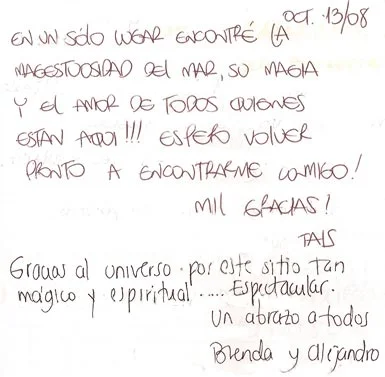 OCT. 13/08
EN UN SÓLO LUGAR ENCONTRÉ LA
MAGESTUOSIDAD DEL MAR, SU MAGIA
Y EL AMOR DE TODOS QUIENES
ESTAN AQUI!!! ESPERO VOLVER
PRONTO A ENCONTRARME COMIGO!
MIL GRACIAS!
TAIS
Gracias al universo por este sitio tan
mágico y espiritual ..... Espectacular.
Un abrazo a todos
Brenda y Alejandro